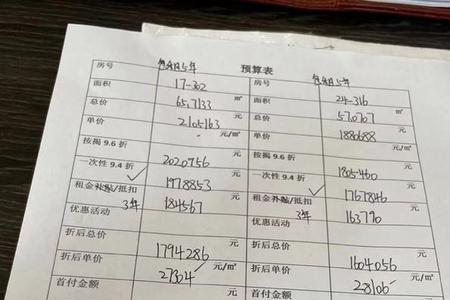 预算表
房号 17-302 房号 24-316
面积 65.7133 ㎡ 面积 57.0707 ㎡
总价 2105163 元 总价 1880688 元
单价 元/㎡ 单价 元/㎡
按揭 9.6 折 2020956 元 按揭 9.6 折 1805460 元
一次性 9.4 折 1978853 元 一次性 9.4 折 1767846 元
租金补贴/抵扣 3年 184567 元 租金补贴/抵扣 3年 163790 元
优惠活动 优惠活动
折后总价 1794286 元 折后总价 1604056 元
折后单价 27304 元/㎡ 折后单价 28106 元/㎡
首付金额 首付金额